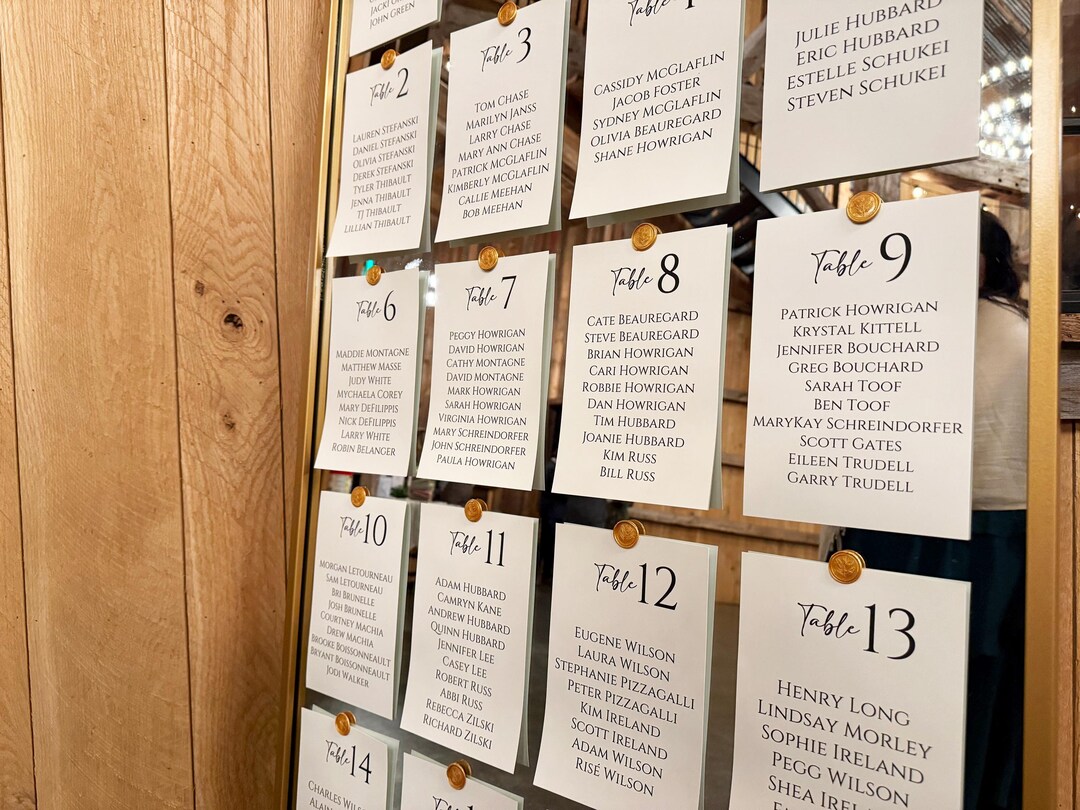 JOHN GREEN
Table 2
LAUREN STEFANSKI
DANIEL STEFANSKI
OLIVIA STEFANSKI
DEREK STEFANSKI
TYLER THIBAULT
JENNA THIBAULT
TJ THIBAULT
LILLIAN THIBAULT
Table 3
TOM CHASE
MARILYN JANSS
LARRY CHASE
MARY ANN CHASE
PATRICK MCGLAFLIN
KIMBERLY MCGLAFLIN
CALLIE MEEHAN
BOB MEEHAN
Table
CASSIDY MCGLAFLIN
JACOB FOSTER
SYDNEY MCGLAFLIN
OLIVIA BEAUREGARD
SHANE HOWRIGAN
JULIE HUBBARD
ERIC HUBBARD
ESTELLE SCHUKEI
STEVEN SCHUKEI
Table 6
MADDIE MONTAGNE
MATTHEW MASSE
JUDY WHITE
MYCHAELA COREY
MARY DEFILIPPIS
NICK DEFILIPPIS
LARRY WHITE
ROBIN BELANGER
Table 7
PEGGY HOWRIGAN
DAVID HOWRIGAN
CATHY MONTAGNE
DAVID MONTAGNE
MARK HOWRIGAN
SARAH HOWRIGAN
VIRGINIA HOWRIGAN
MARY SCHREINDORFER
JOHN SCHREINDORFER
PAULA HOWRIGAN
Table 8
CATE BEAUREGARD
STEVE BEAUREGARD
BRIAN HOWRIGAN
CARI HOWRIGAN
ROBBIE HOWRIGAN
DAN HOWRIGAN
TIM HUBBARD
JOANIE HUBBARD
KIM RUSS
BILL RUSS
Table 9
PATRICK HOWRIGAN
KRYSTAL KITTELL
JENNIFER BOUCHARD
GREG BOUCHARD
SARAH TOOF
BEN TOOF
MARYKAY SCHREINDORFER
SCOTT GATES
EILEEN TRUDELL
GARRY TRUDELL
Table 10
MORGAN LETOURNEAU
SAM LETOURNEAU
BRI BRUNELLE
JOSH BRUNELLE
COURTNEY MACHIA
DREW MACHIA
BROOKE BOISSONNEAULT
BRYANT BOISSONNEAULT
JODI WALKER
Table 11
ADAM HUBBARD
CAMRYN KANE
ANDREW HUBBARD
QUINN HUBBARD
JENNIFER LEE
CASEY LEE
ROBERT RUSS
ABBI RUSS
REBECCA ZILSKI
RICHARD ZILSKI
Table 12
EUGENE WILSON
LAURA WILSON
STEPHANIE PIZZAGALLI
PETER PIZZAGALLI
KIM IRELAND
SCOTT IRELAND
ADAM WILSON
RISÉ WILSON
Table 13
HENRY LONG
LINDSAY MORLEY
SOPHIE IRELAND
PEGG WILSON
SHEA
Table 14
CHARLES
Table